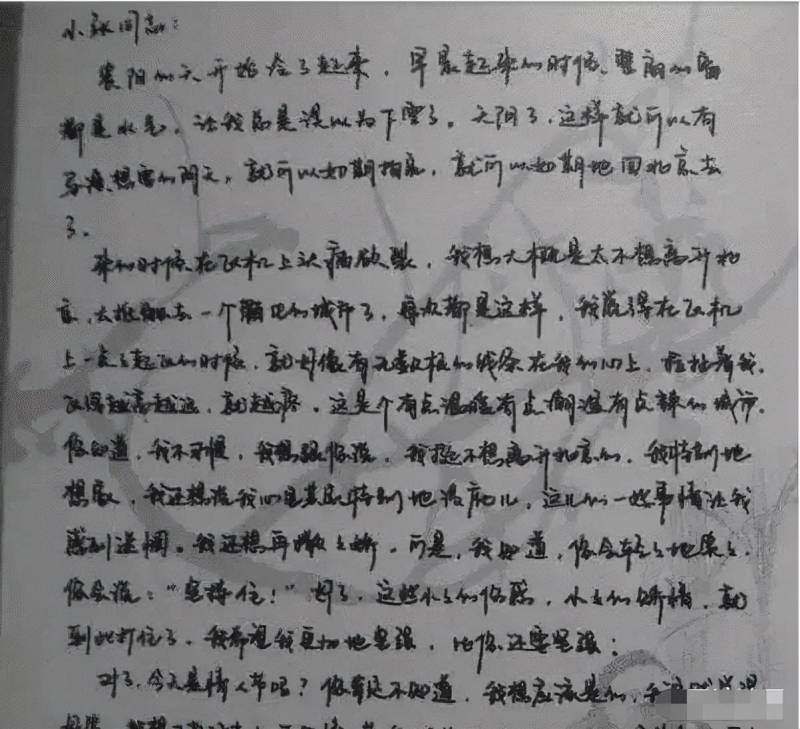 小张同志：
襄阳的天开始冷了起来，早晨起来的时候，里面的窗
都是水气，让我总是误以为下雪了。天阴了，这样就可以有
想要的阴天，就可以如期拍戏，就可以如期地回北京去
了。
来的时候在飞机上头痛欲裂，我想大概是太不想离开北
京，去一个的城市了，每次都是这样，我觉得在飞机
上一点点起飞的时候，就好像有无数根的线条在我们心上，拉扯着我，
飞得越高越远，就越疼。这是个有点温暖有点潮湿有点辣的城市。
你知道，我不习惯，我想跟你说，我挺不想离开北京的，我特别地
想家，我还想说我心里其实特别地没底儿，这儿的一些事情让我
感到迷惘。我还想再撒点娇，可是，我知道，你会轻轻地笑笑，
你会说：“坚持住！”好了，这些小小的伤感，小小的矫情，就
到此打住了，我希望我更加地坚强，比你还要坚强；
对了，今天是情人节吗？你肯定不知道，我想应该是的，
我想